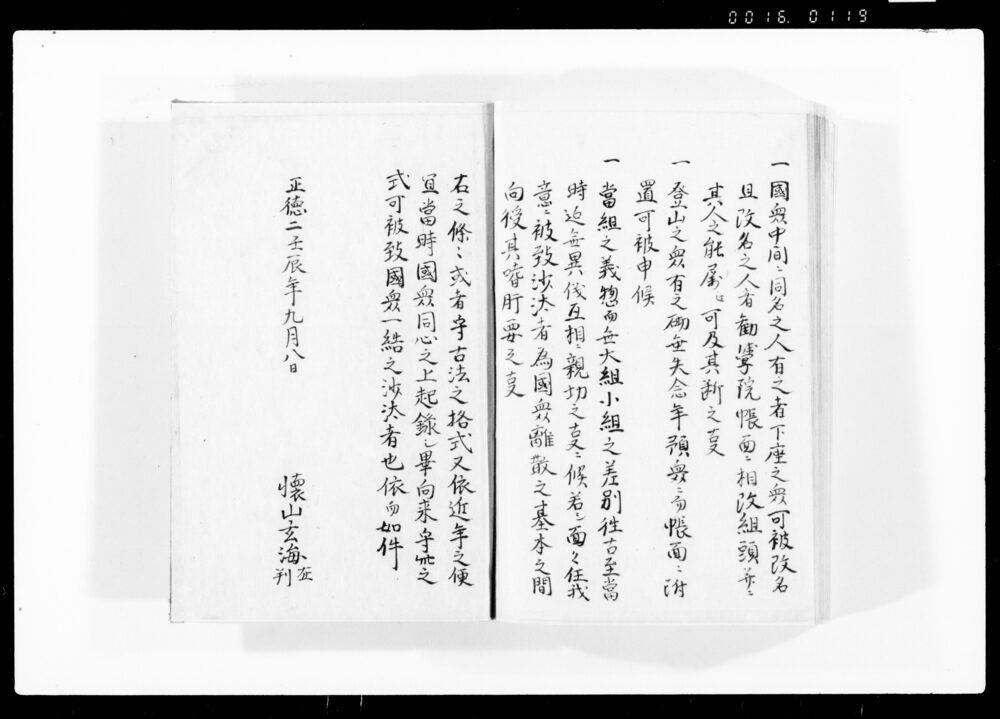 0016. 0119
一國衆中間ニ同名之人有之者下座之衆可被改名
且改名之人者勧学院帳面ニ相改組頭并ニ
其人之能属江可及其断之事
一登山之衆有之砌無失念年預衆ニ而帳面ニ附
置可被申候
一當組之義惣而無大組小組之差別往古至當
時迄無異儀互相ニ親切之事ニ候若シ面々任我
意ニ被致沙汰者為國衆離散之基本之間
向後其嗜肝要之事
右之條々或者守古法之格式又依近年之便
宜當時國衆同心之上起録シ畢向来守此之
式可被致國衆一結之沙汰者也依而如件
正徳二壬辰年九月八日
懐山玄海在判